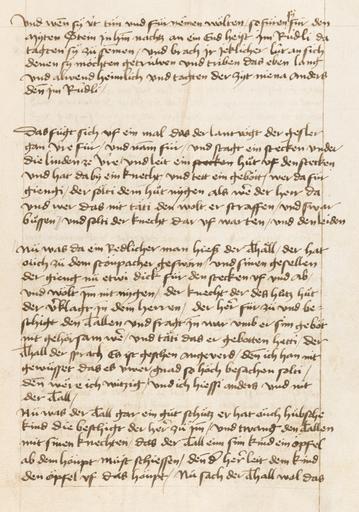 und wen sy üt tün und für nemen wolten, so füren sy für den
myten Stein jn hin nachtz an ein End heist jm Rüdli da
tagten sy zü semen, und brach jr jeklicher lüt an sich
denen sy möchten getrüwen und triben das eben lang
und alwend heimlich und tagten der zyt niena anders
den jm Rudli
Das fügt sich uf ein mal das der lantvogt der gesler
gan Ure für, und nam für, und stagt ein stecken under
die linden ze Vre und leit ein hüt uf den stecken
und hat da by ein knecht und tett ein gebött, wer da für
giengi, der sölti dem hüt nygen als wer der herr da
und wer das nit täti den wolt er straffen und swar
büssen, und solti der knecht dar uf warten, und den leiden
Nü was da ein Redlicher man hiess der Thäll, der hat
ouch zü dem stöupacher gesworn und sinen gesellen
der gieng nü etwi dick für den stecken uf und ab /
und wolt jm nit nygen / der knecht der des hütz hüt
der verklagt jn dem herren / der her für zü und be-
schigt den Tallen und fragt jn war umb er sim gebott
nit gehorsam wer, und täti das er gebotten hetti, der
Thall der sprach es ist geschen angeverd / den ich han nit
gewüsset das es üwer gnad so höch besachen solti /
den were ich witzig, und ich hiessi anders und nit
der Tall /
Nü was der Tall gar ein güt schütz er hat ouch hübsche
kind die beschigt der her zü jm / und twang den Tallen
mit sinen knechten, das der Tall eim sim kind ein öpfel
ab dem höupt müst schiessen / den der herr leit dem kind
den öpfel uf das höupt / Nü sach der Thall wol das